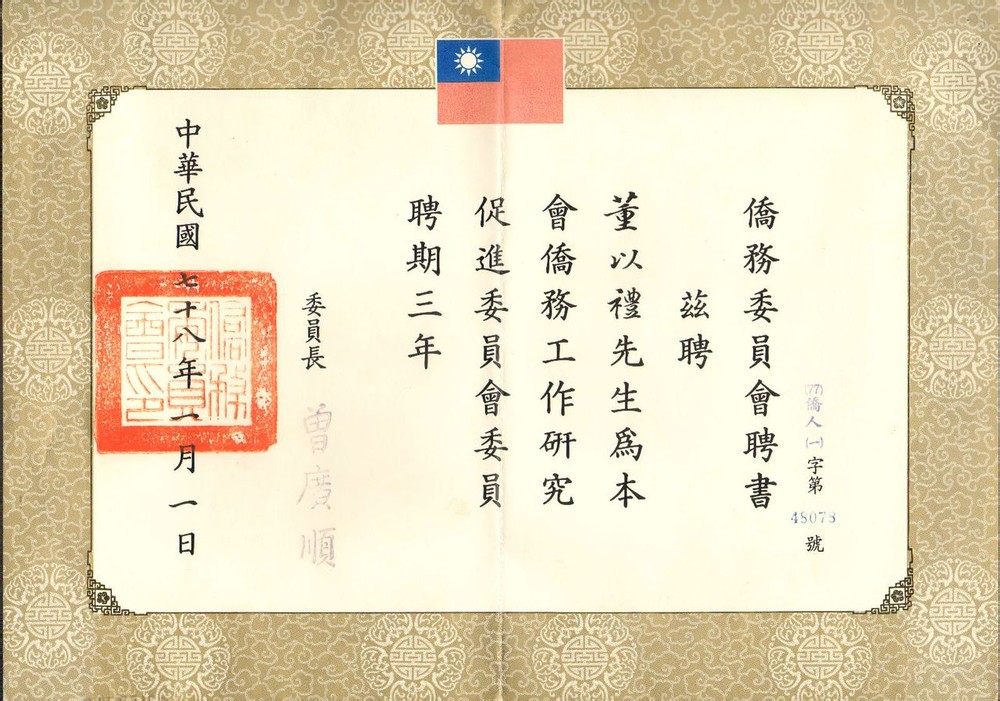 僑務委員會聘書
(77)僑人(一)字第48078號
茲聘
董以禮先生為本
會僑務工作研究
促進委員會委員
聘期三年
委員長
曾廣順
中華民國七十八年一月一日
僑務委員會印